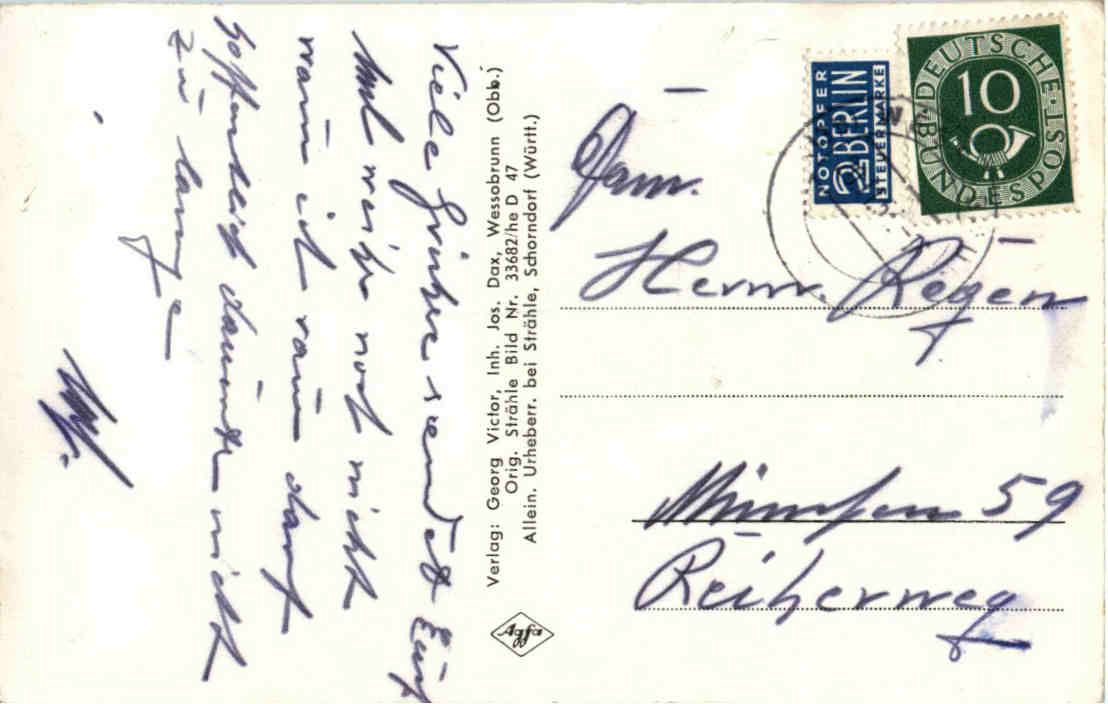 Viele Grüße sendet Euch
weiß noch nicht
wann ich raus darf
hoffentlich dauert's nicht
zu lange
Verlag: Georg Victor, Inh. Jos. Dax, Wessobrunn (Obb.)
Orig. Strähle Bild Nr. 33682/he D 47
Allein. Urheberr. bei Strähle, Schorndorf (Württ.)
Agfa
NOTOPFER
2 BERLIN
STEUERMARKE
DEUTSCHE BUNDESPOST
10
Fam.
Herm. Regen
München 59
Reiherweg